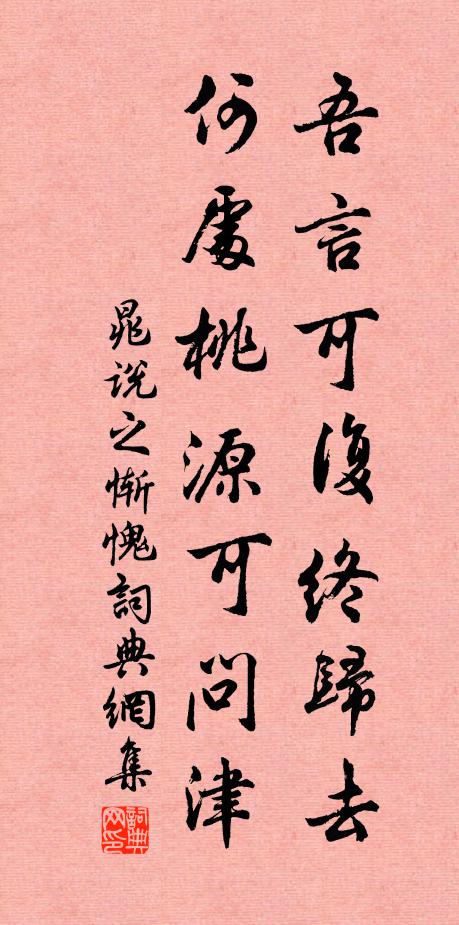 吾言可復終歸去
何處桃源可問津
晁說之慚愧詞典網集
詞典网印